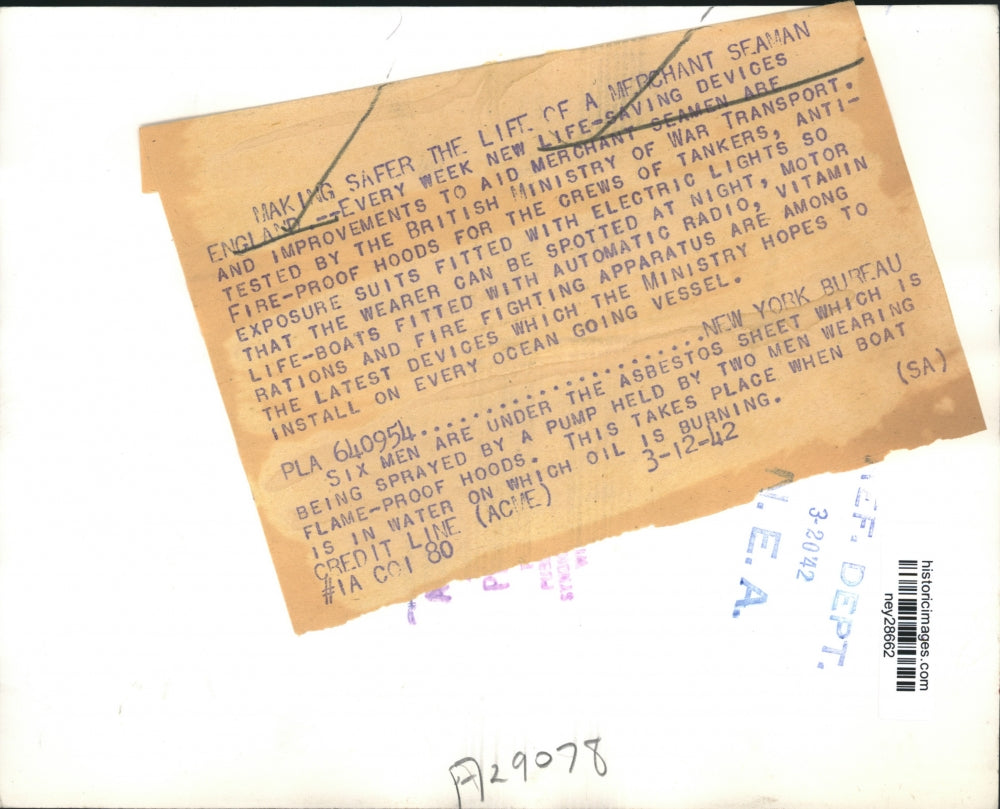 MAKING SAFER THE LIFE OF A MERCHANT SEAMAN
ENGLAND --EVERY WEEK NEW LIFE-SAVING DEVICES
AND IMPROVEMENTS TO AID MERCHANT SEAMEN ARE
TESTED BY THE BRITISH MINISTRY OF WAR TRANSPORT.
FIRE-PROOF HOODS FOR THE CREWS OF TANKERS, ANTI-
EXPOSURE SUITS FITTED WITH ELECTRIC LIGHTS SO
THAT THE WEARER CAN BE SPOTTED AT NIGHT, MOTOR
LIFE-BOATS FITTED WITH AUTOMATIC RADIO, VITAMIN
RATIONS AND FIRE FIGHTING APPARATUS ARE AMONG
THE LATEST DEVICES WHICH THE MINISTRY HOPES TO
INSTALL ON EVERY OCEAN GOING VESSEL.
PLA 640954..........................NEW YORK BUREAU
SIX MEN ARE UNDER THE ASBESTOS SHEET WHICH IS
BEING SPRAYED BY A PUMP HELD BY TWO MEN WEARING
FLAME-PROOF HOODS. THIS TAKES PLACE WHEN BOAT
IS IN WATER ON WHICH OIL IS BURNING.
CREDIT LINE (ACME) 3-12-42 (SA)
#1A COI 80
EF. DEPT.
3-2042
N.E.A.
historicimages.com
ney28662
A29078